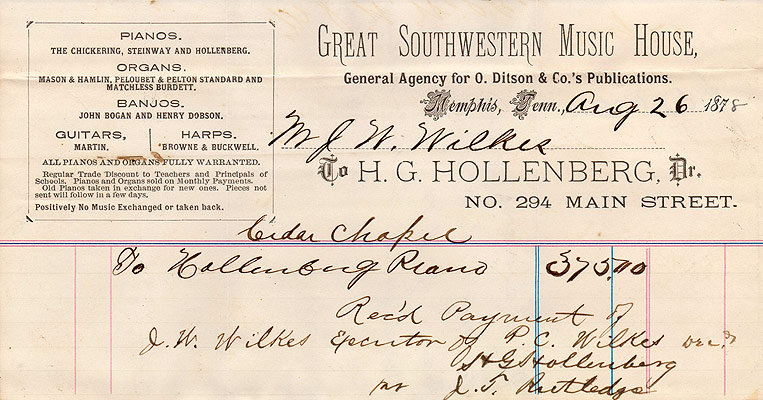 PIANOS.
THE CHICKERING, STEINWAY AND HOLLENBERG.
ORGANS.
MASON & HAMLIN, PELOUBET & PELTON STANDARD AND
MATCHLESS BURDETT.
BANJOS.
JOHN BOGAN AND HENRY DOBSON.
GUITARS, HARPS.
MARTIN. BROWNE & BUCKWELL.
ALL PIANOS AND ORGANS FULLY WARRANTED.
Regular Trade Discount to Teachers and Principals of
Schools. Pianos and Organs sold on Monthly Payments.
Old Pianos taken in exchange for new ones. Pieces not
sent will follow in a few days.
Positively No Music Exchanged or taken back.
GREAT SOUTHWESTERN MUSIC HOUSE,
General Agency for O. Ditson & Co.'s Publications.
Memphis, Tenn., Aug 26 1878
M J. W. Wilkes
To H. G. HOLLENBERG, Dr.
NO. 294 MAIN STREET.
Cedar Chapel
To Hollenberg Piano 375.00
Rec'd Payment of
J. W. Wilkes Executor of P. C. Wilkes
H G Hollenberg
J. T. Rutledge